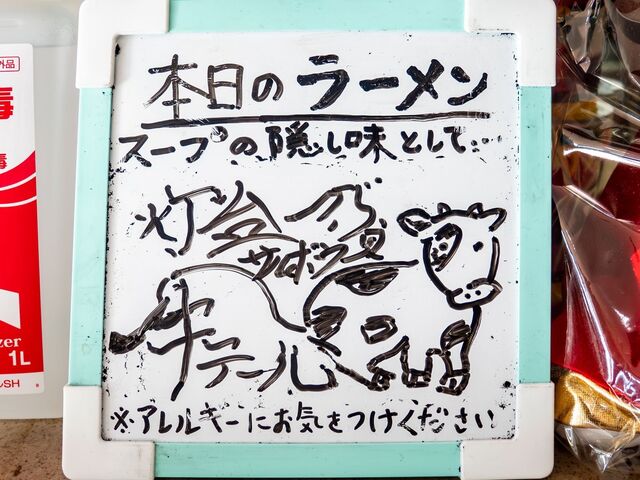 外品
毒
毒
zer
1L
ルSH
本日のラーメン
スープの隠し味として…
灯台
サボウ
牛テール
※アレルギーにお気をつけください